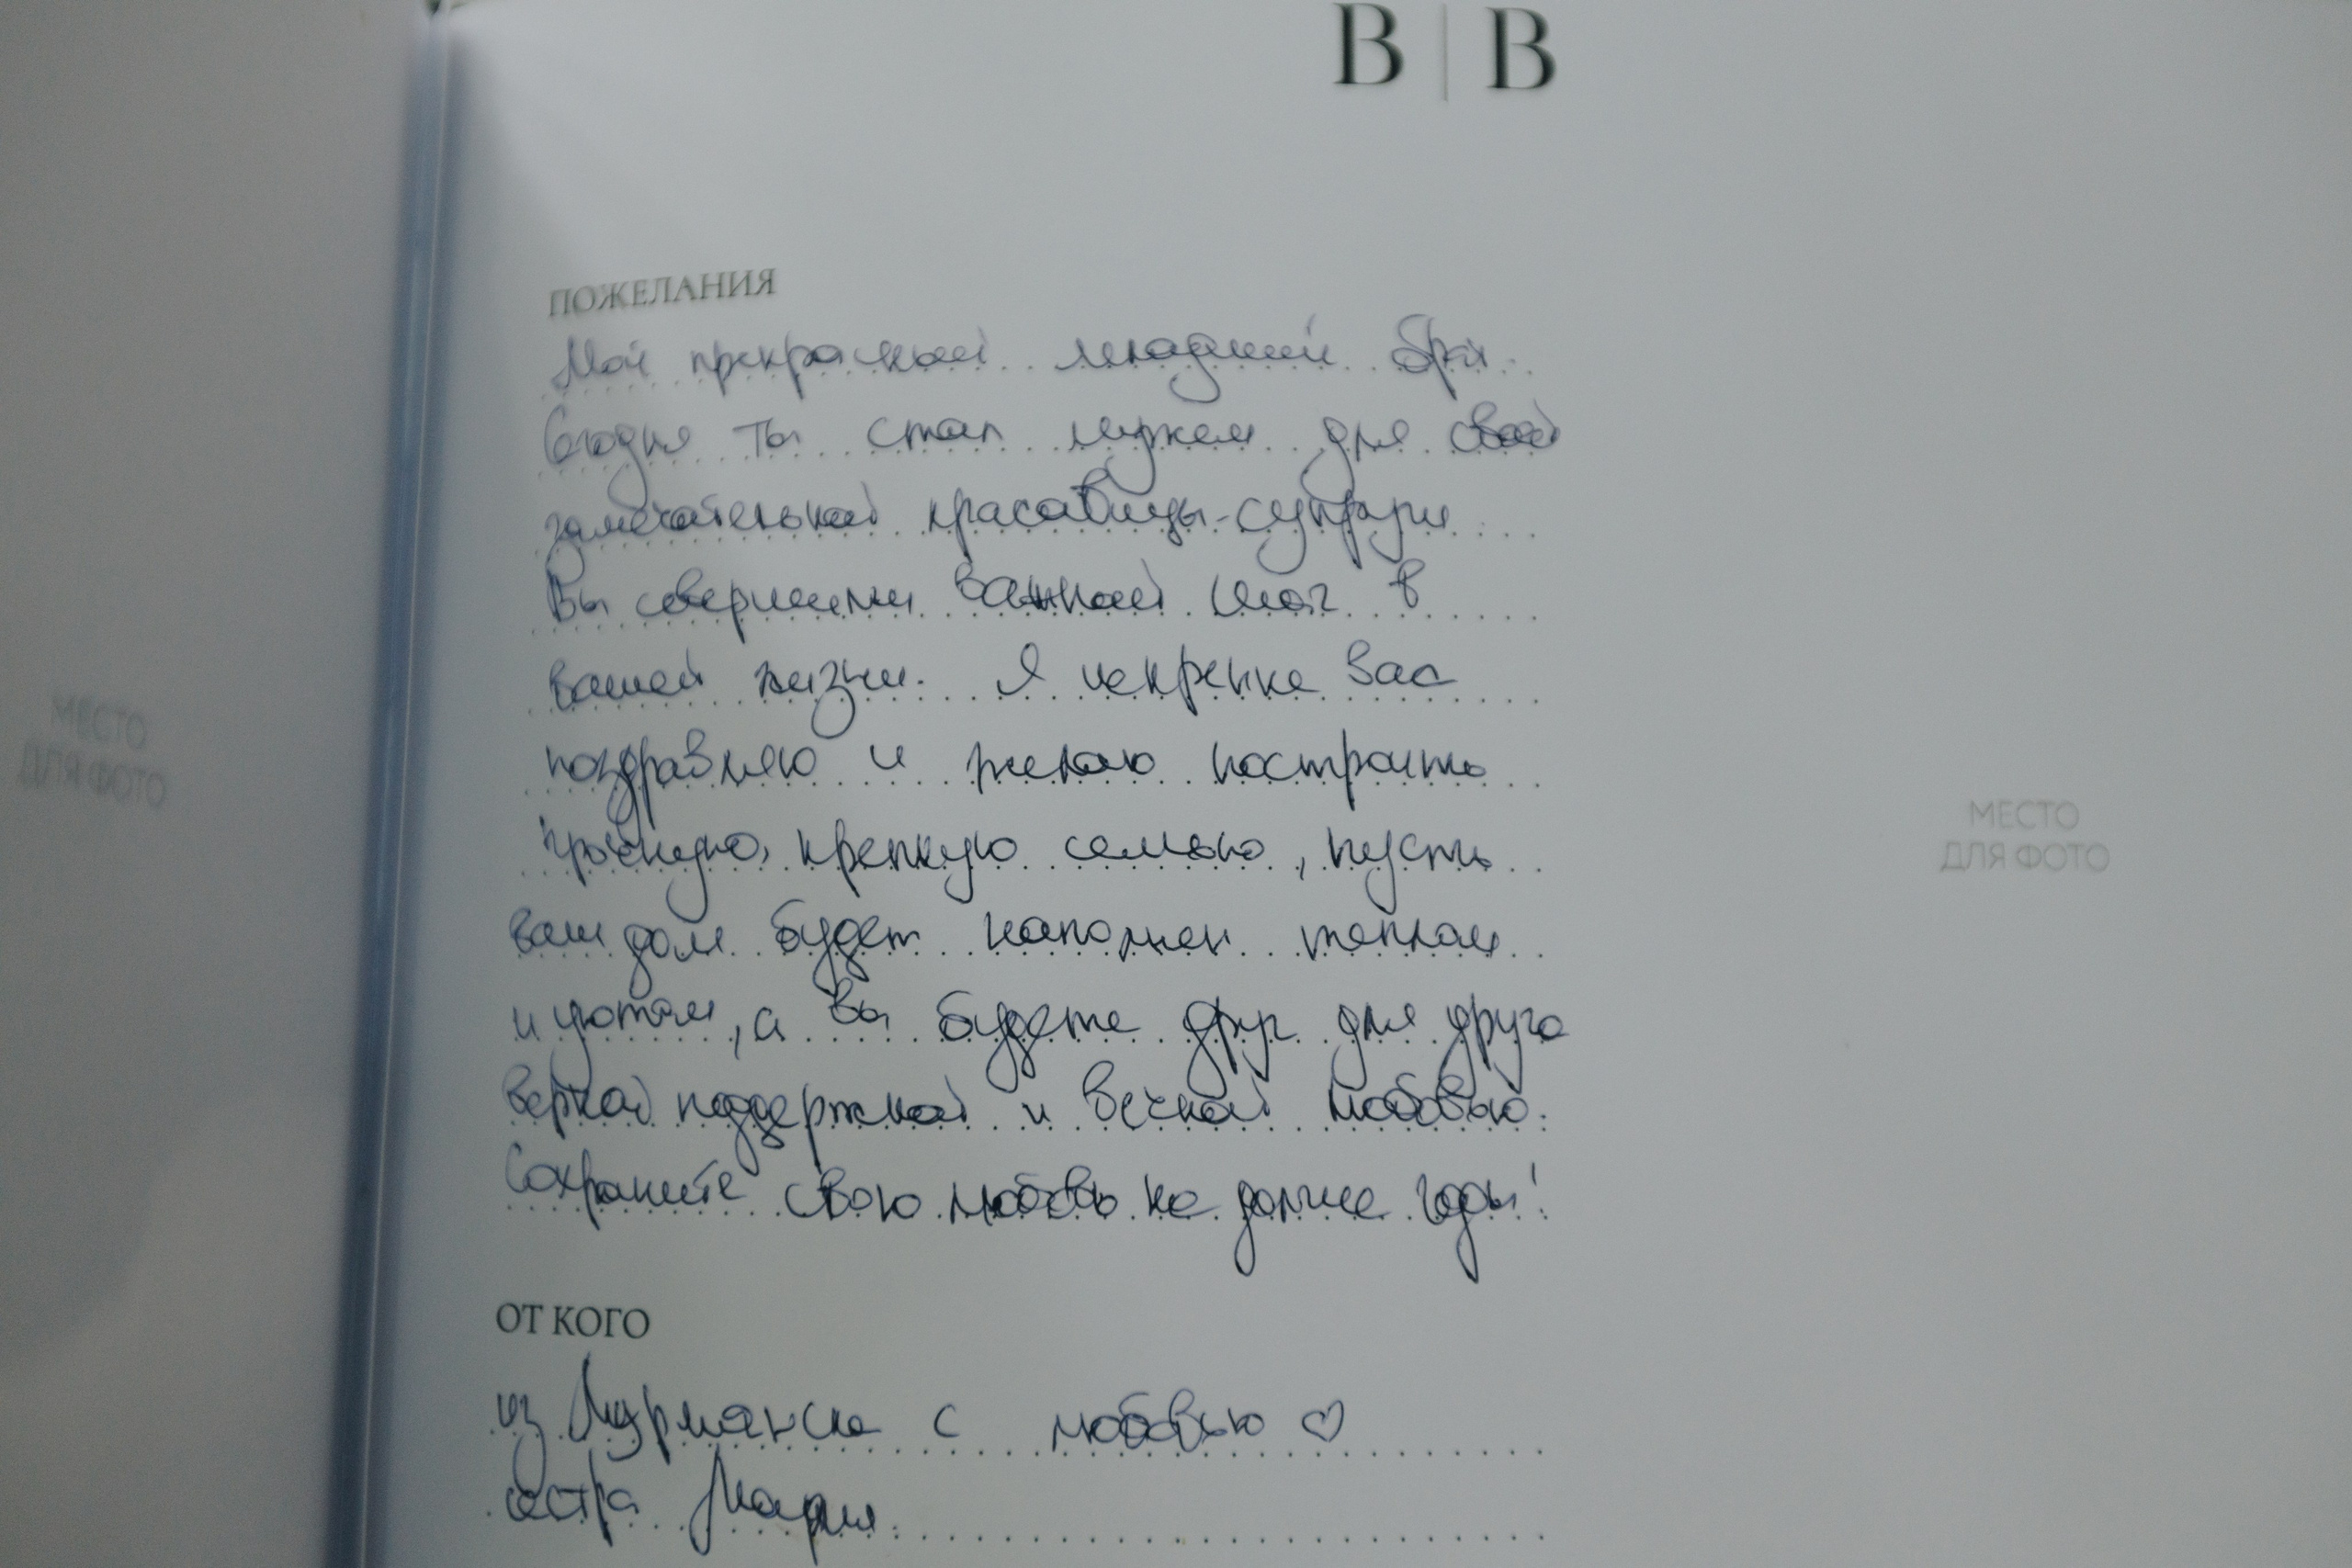 В | В
ПОЖЕЛАНИЯ
Мой прекрасный младший брат.
Сегодня ты стал мужем для своей
замечательной красавицы-супруги.
Вы совершили важный шаг в
вашей жизни. Я искренне вас
поздравляю и желаю построить
прочную, крепкую семью, пусть
ваш дом будет наполнен теплом
и уютом, а вы будете друг для друга
верной поддержкой и вечной любовью.
Сохраните свою любовь на долгие годы!
ОТ КОГО
из Мурманска с любовью ♡
сестра Мария.
МЕСТО
ДЛЯ ФОТО
МЕСТО
ДЛЯ ФОТО